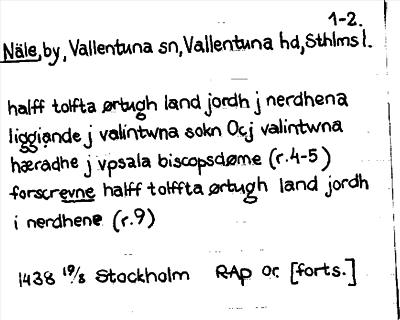 1-2.
Näle, by, Vallentuna sn, Vallentuna hd, Sthlms l.
halff tolfta ørtugh land jordh j nerdhena
liggiande j valintwna sokn Ocj valintwna
hæradhe j vpsala biscopsdøme (r.4-5)
forscrevne halff tolffta ørtugh land jordh
i nerdhene (r.9)
1438 19/8 Stockholm RAp or. [forts.]